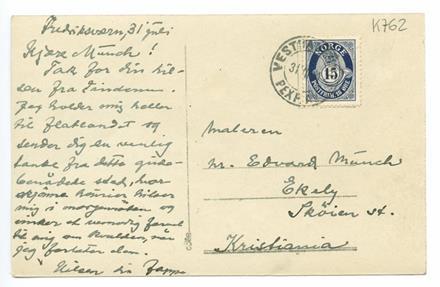 Fredriksværn, 31 juli
Kjære Munch!
Tak for din hil-
sen fra Tinderne.
Jeg holder mig heller
til flatlandet og
sender dig en venlig
tanke fra dette guds-
benådede sted, hvor
skjønne kvinder hilser
mig i morgenrøden og
vinker et farvel
til mig om kvelden, når
jeg forlater dem.
Hilsen din Jappe
K762
NORGE
15
POSTFRIM.
Maleren
hr. Edvard Münch
Ekely
Skøien st.
Kristiania